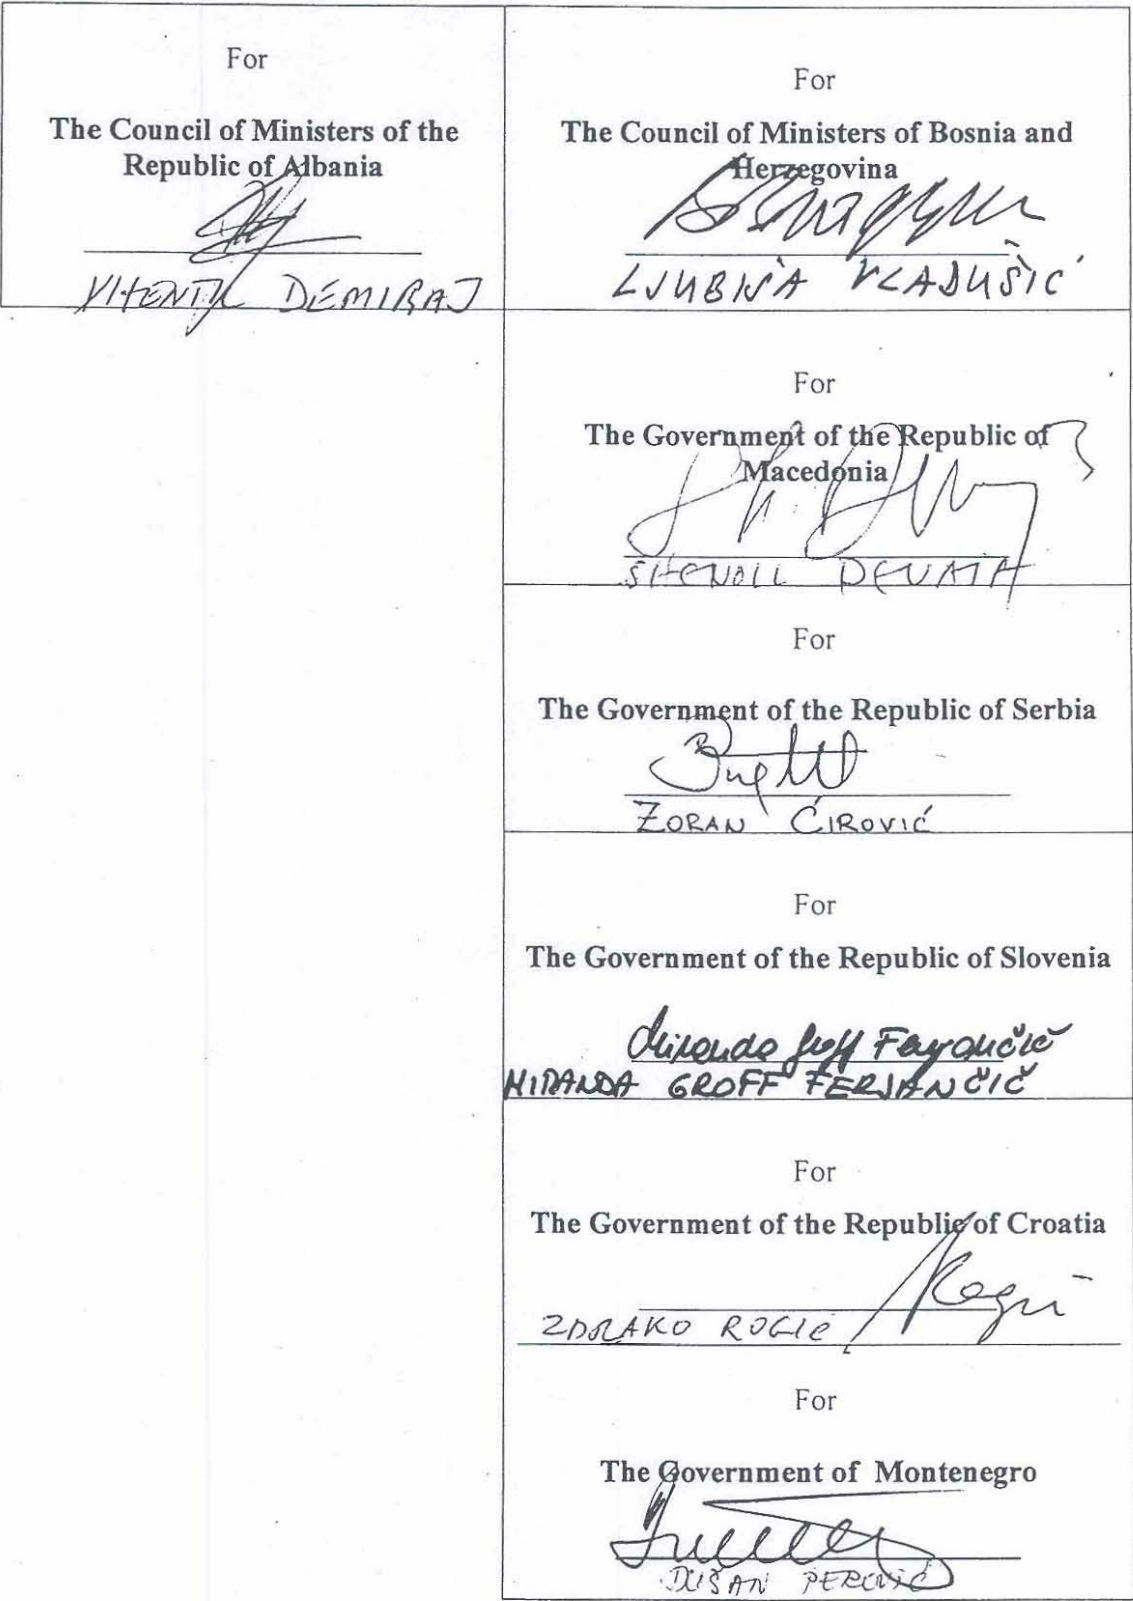 For
The Council of Ministers of the
Republic of Albania
DEMIRAJ
For
The Council of Ministers of Bosnia and
Herzegovina
LJUBIŠA VLADUŠIĆ
For
The Government of the Republic of
Macedonia
For
The Government of the Republic of Serbia
ZORAN ĆIROVIĆ
For
The Government of the Republic of Slovenia
Miranda Groff Ferjančič
MIRANDA GROFF FERJANČIČ
For
The Government of the Republic of Croatia
ZDRAVKO ROGIĆ
For
The Government of Montenegro
DUŠAN PEROVIĆ